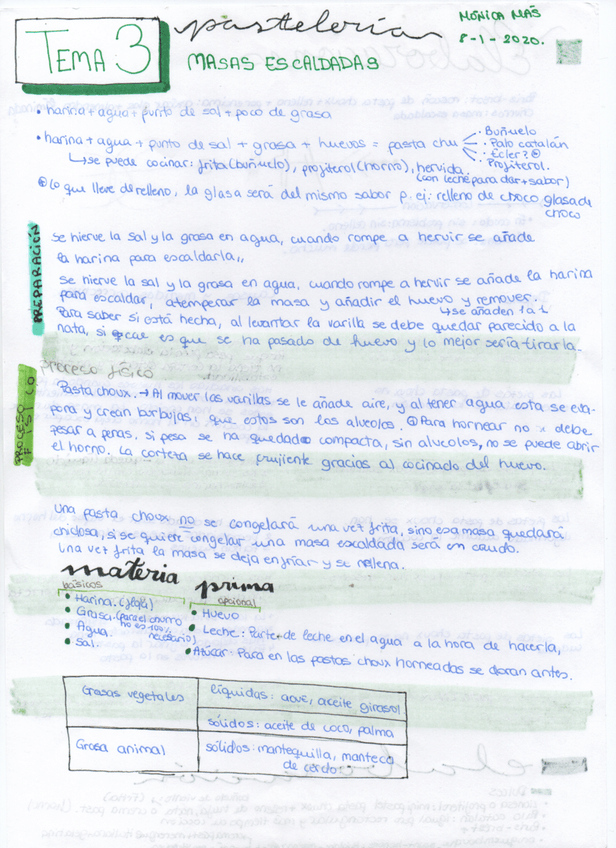 TEMA 3
pastelería
MÓNICA MAS
8-1-2020.
MASAS ESCALDADAS
• harina + agua + punto de sal + poco de grasa
• harina + agua + punto de sal + grasa + huevos = pasta chu
· Buñuelo
· Palo catalán
· Ecler? ⊛
· Profiterol.
↳ se puede cocinar: frita (buñuelo), profiterol (horno), hervida
(con leche para dar + sabor)
⊛ lo que lleve de relleno, la glasa será del mismo sabor p. ej: relleno de choco glasa de
choco
PREPARACIÓN
se hierve la sal y la grasa en agua, cuando rompe a hervir se añade
la harina para escaldarla,,
se hierve la sal y la grasa en agua, cuando rompe a hervir se añade la harina
para escaldar, atemperar la masa y añadir el huevo y remover.
↳ se añaden 1 a 1
Para saber si está hecha, al levantar la varilla se debe quedar parecido a la
nata, si es que se ha pasado de huevo y lo mejor sería tirarla.
proceso físico
PROCESO FÍSICO
Pasta choux. → Al mover las varillas se le añade aire, y al tener agua esta se eva-
pora y crean burbujas, que estos son los alveolos. Para hornear no x debe
pesar a penas. si pesa se ha quedado compacta, sin alveolos, no se puede abrir
el horno. La corteza se hace crujiente gracias al cocinado del huevo.
Una pasta choux no se congelará una vez frita, sino esa masa quedará
chiclosa, si se quiere congelar una masa escaldada será en crudo.
Una vez frita la masa se deja enfriar y se rellena.
materia prima
básicos
• Harina. (floja)
• Grasa. (para el churro no es 100% necesario)
• Agua.
• Sal.
opcional
• Huevo
• Leche: Parte de leche en el agua a la hora de hacerla,
• Azúcar: Para en las pastas choux horneadas se doran antes.
Grasas vegetales
líquidas: aove, aceite girasol
sólidos: aceite de coco, palma
Grasa animal
sólidos: mantequilla, manteca
de cerdo